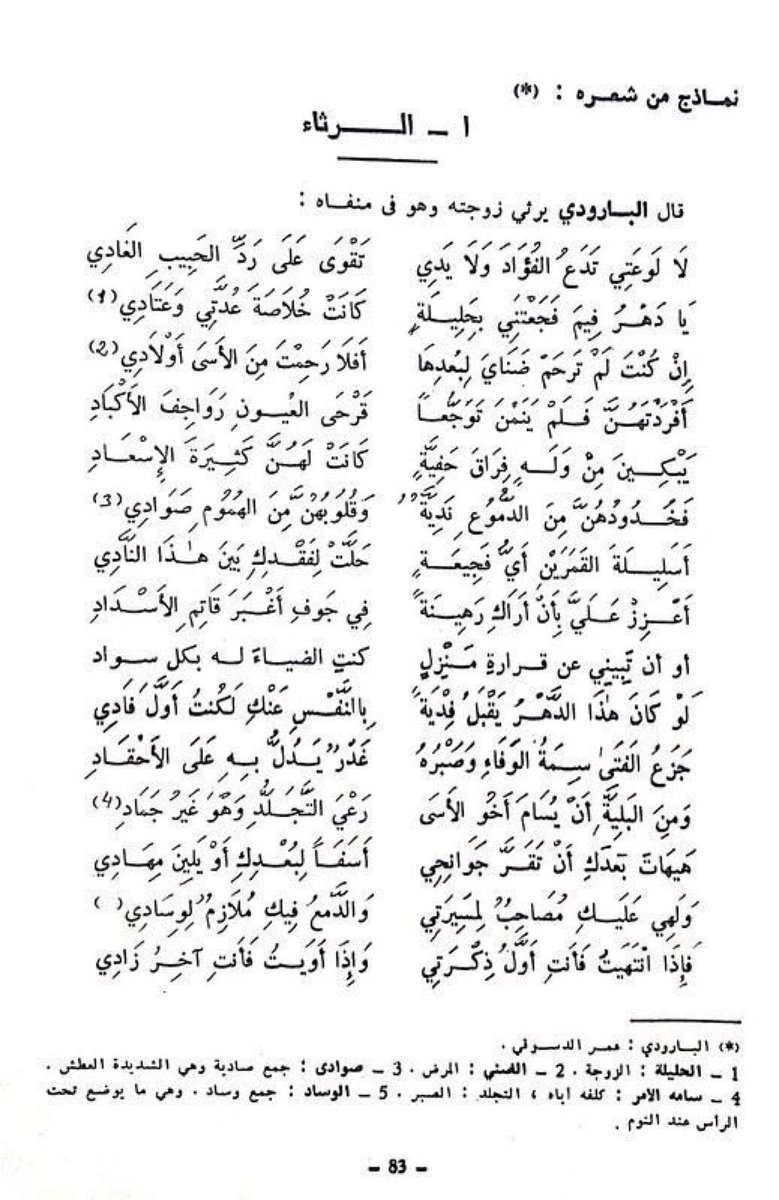 نماذج من شعره : (*)
١ ـ الرثاء
قال البارودي يرثي زوجته وهو فى منفاه :
لَا لَوعَتِي تَدَعُ الفُؤَادَ وَلَا يَدِي تَقْوَى عَلَى رَدِّ الحَبِيبِ الغَادِي
يَا دَهْرُ فِيمَ فَجَعْتَنِي بِحَلِيلَةٍ كَانَتْ خُلَاصَةَ عُدَّتِي وَعَتَادِي (1)
إِنْ كُنْتَ لَمْ تَرحَمْ ضَنَايَ لِبُعدِهَا أَفَلَا رَحِمْتَ مِنَ الأَسَى أَوْلَادِي (2)
أَفْرَدْتَهُنَّ فَلَمْ يَنَمْنَ تَوَجُّعاً قَرْحَى العُيونِ رَوَاجِفَ الأَكْبَادِ
يَبْكِينَ مِنْ وَلَهٍ فِرَاقَ حَفِيَّةٍ كَانَتْ لَهُنَّ كَثِيرَةَ الإِسْعَادِ
فَخُدُودُهُنَّ مِنَ الدُّمُوعِ نَدِيَّةٌ وَقُلُوبُهُنَّ مِنَ الهُمُومِ صَوَادِي (3)
أَسَلِيلَةَ القَمَرَيْنِ أَيُّ فَجِيعَةٍ حَلَّتْ لِفَقْدِكِ بَينَ هٰذَا النَّادِي
أَعْزِزْ عَلَيَّ بِأَنْ أَرَاكِ رَهِينَةً فِي جَوفِ أَغْبَرَ قَاتِمِ الأَسْدَادِ
أو أن تَبِيني عن قرارةِ مَنْزِلٍ كنتِ الضياءَ له بكل سواد
لَوْ كَانَ هٰذَا الدَّهْرُ يَقْبَلُ فِدْيَةً بِالنَّفْسِ عَنْكِ لَكُنتُ أَوَّلَ فَادِي
جَزَعُ الفَتَى سِمَةُ الوَفَاءِ وَصَبْرُهُ غَدْرٌ يَدُلُّ بِهِ عَلَى الأَحْقَادِ
وَمِنَ البَلِيَّةِ أَنْ يُسَامَ أَخُو الأَسَى رَعْيَ التَّجَلُّدِ وَهْوَ غَيرُ جَمَادِ (4)
هَيهَاتَ بَعدَكِ أَنْ تَقَرَّ جَوَانِحِي أَسَفَاً لِبُعْدِكِ أَوْ يَلِينَ مِهَادِي
وَلَهِي عَلَيكِ مُصَاحِبٌ لِمَسِيرَتِي وَالدَّمعُ فِيكِ مُلَازِمٌ لِوِسَادِي ( )
فَإِذَا انْتَهَيتُ فَأَنتِ أَوَّلُ ذِكْرَتِي وَإِذَا أَوَيتُ فَأَنتِ آخِرُ زَادِي
(*) البارودي : عمر الدسوقي .
1 ـ الحليلة : الزوجة . 2 ـ الضني : المرض . 3 ـ صوادى : جمع صادية وهي الشديدة العطش .
4 ـ سامه الأمر : كلفه اياه ، التجلد : الصبر . 5 ـ الوساد : جمع وساد . وهي ما يوضع تحت
الرأس عند النوم .
- 83 -